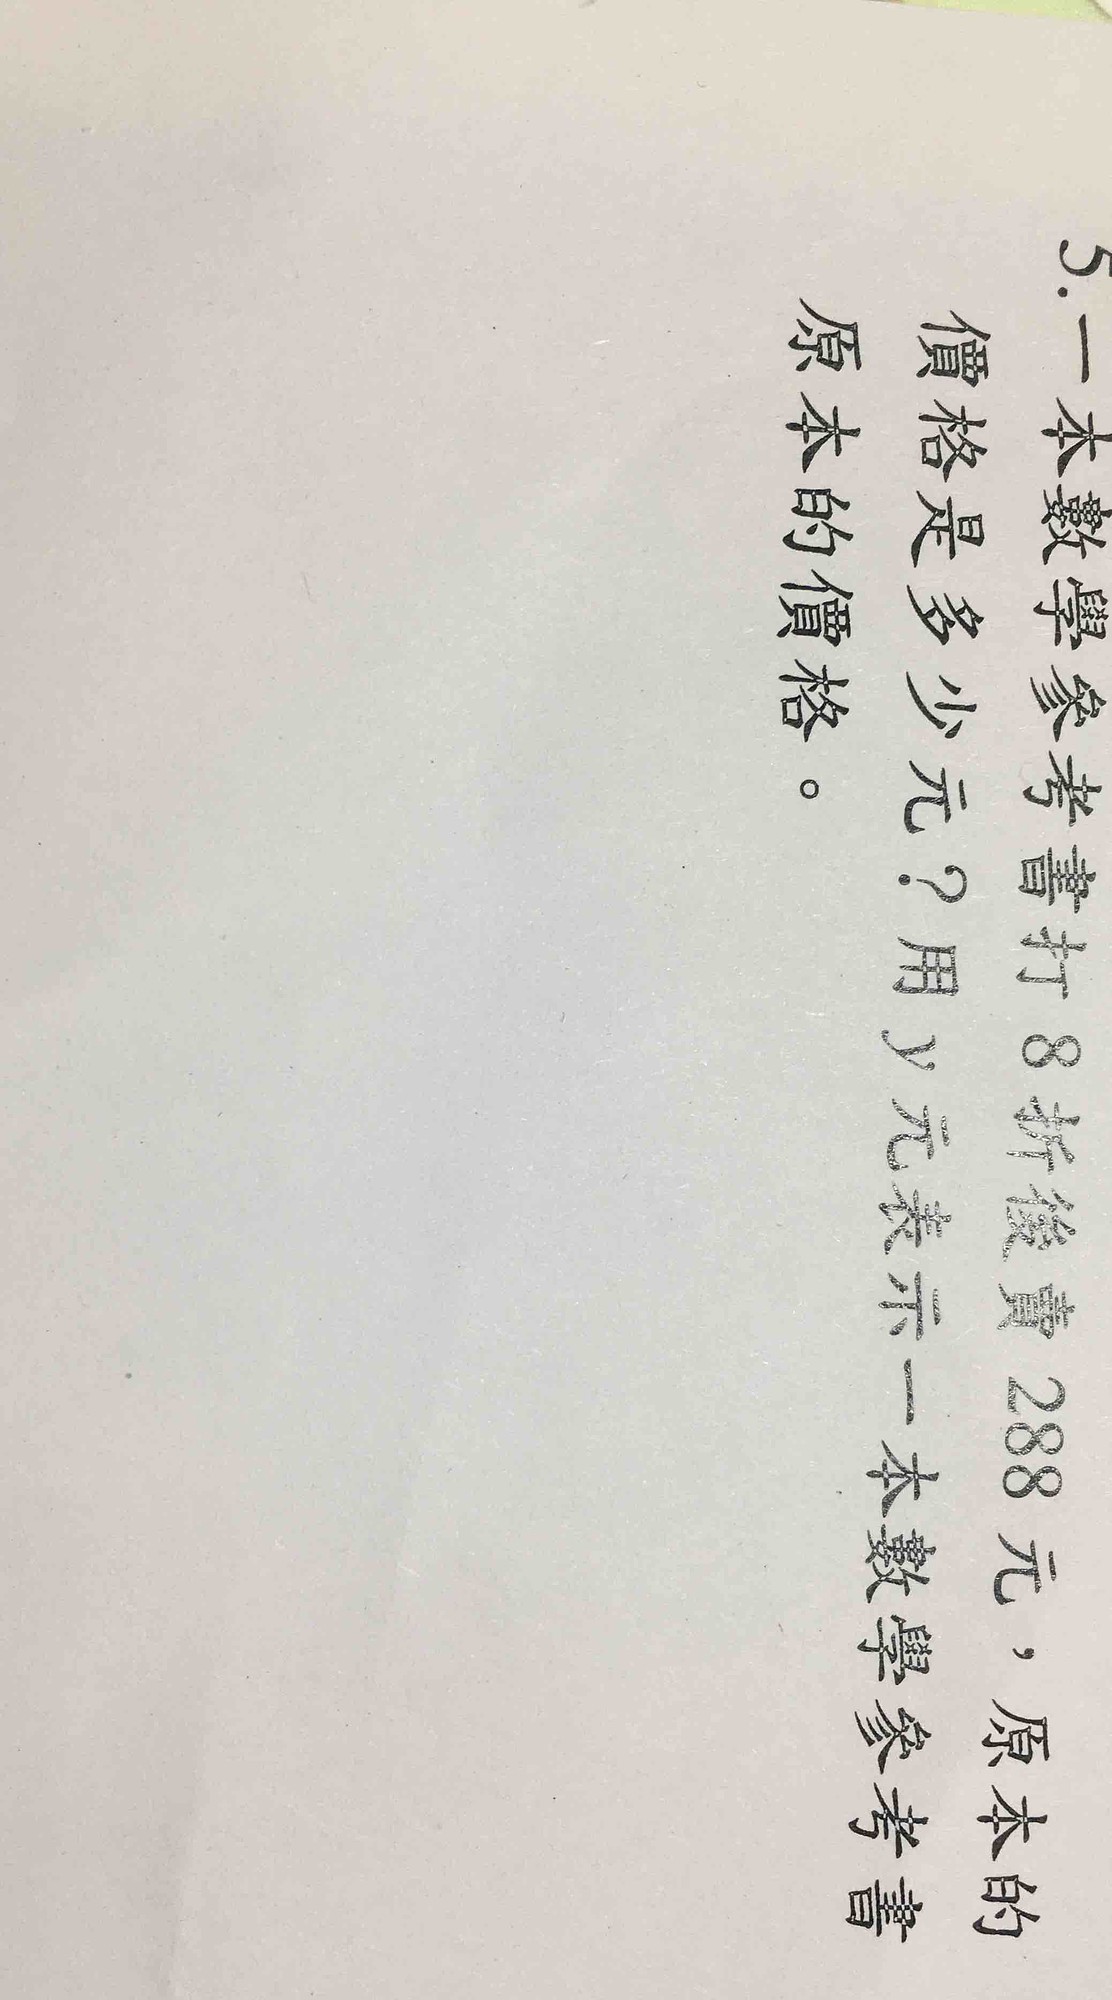 5.一本數學參考書打 8 折後賣 288 元，原本的
價格是多少元？用 y 元表示一本數學參考書
原本的價格。